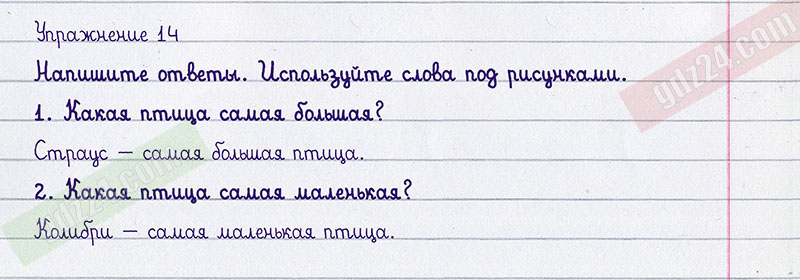 Упражнение 14
Напишите ответы. Используйте слова под рисунками.
1. Какая птица самая большая?
Страус — самая большая птица.
2. Какая птица самая маленькая?
Колибри — самая маленькая птица.
gdz24.com
gdz24.com